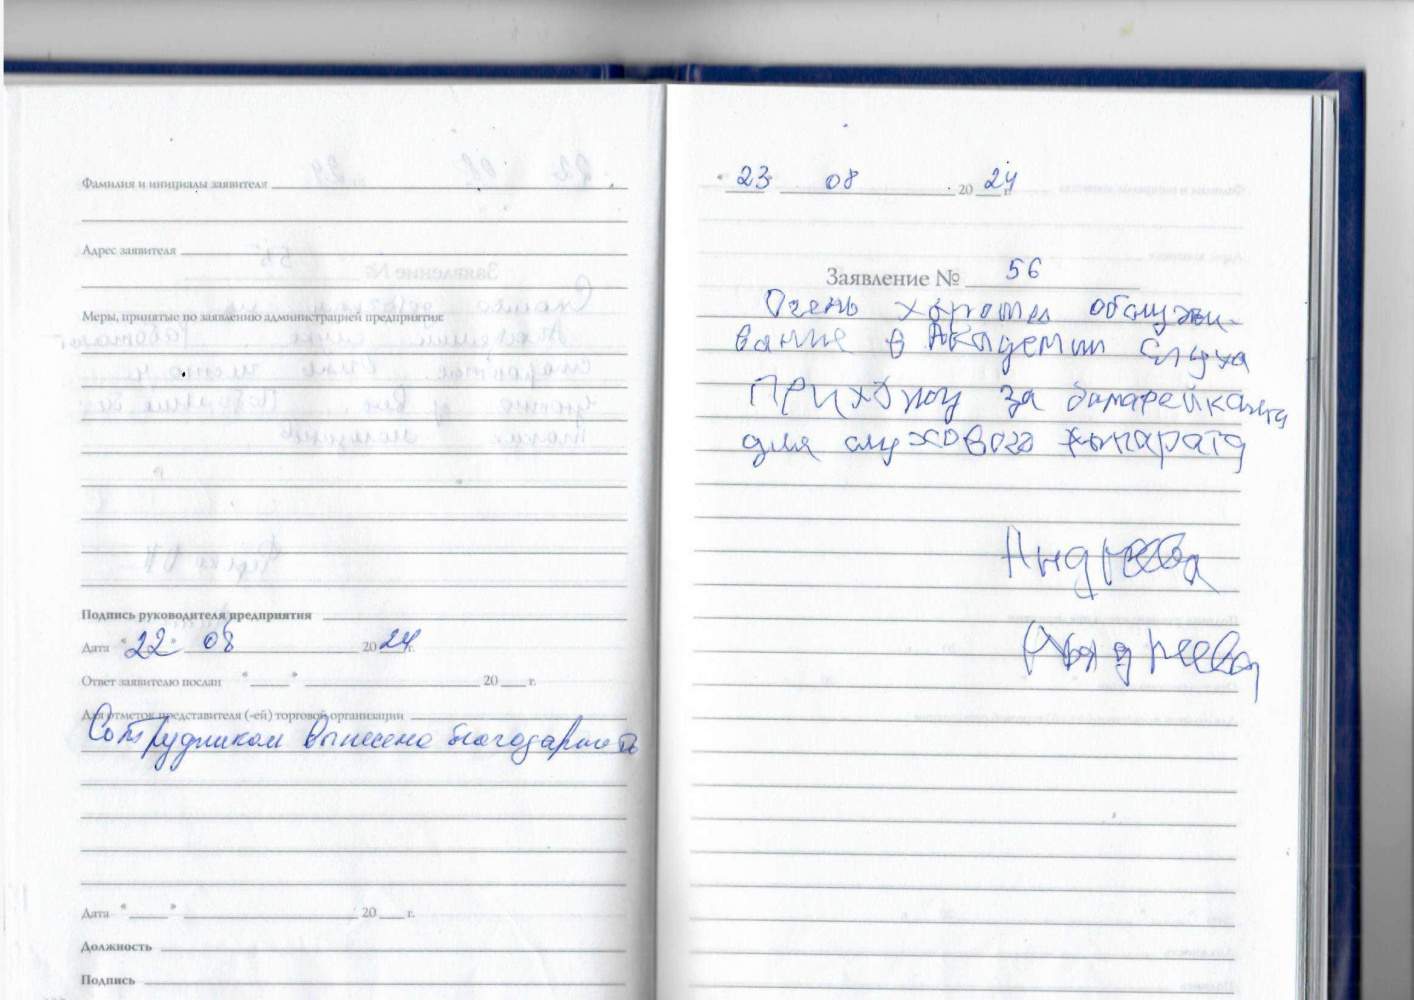 Фамилия и инициалы заявителя
Адрес заявителя
Меры, принятые по заявлению администрацией предприятия:
Подпись руководителя предприятия
Дата "22" 08 2024г.
Ответ заявителю послан " " 20 г.
Для отметок представителя (-ей) торговой организации
Сотрудникам вынесена благодарность
Дата " " 20 г.
Должность
Подпись
"23" 08 2024г.
Заявление № 56
Очень хорошее обслужи-
вание в Академии Слуха
Прихожу за батарейками
для слухового аппарата
Андреева
Андреева